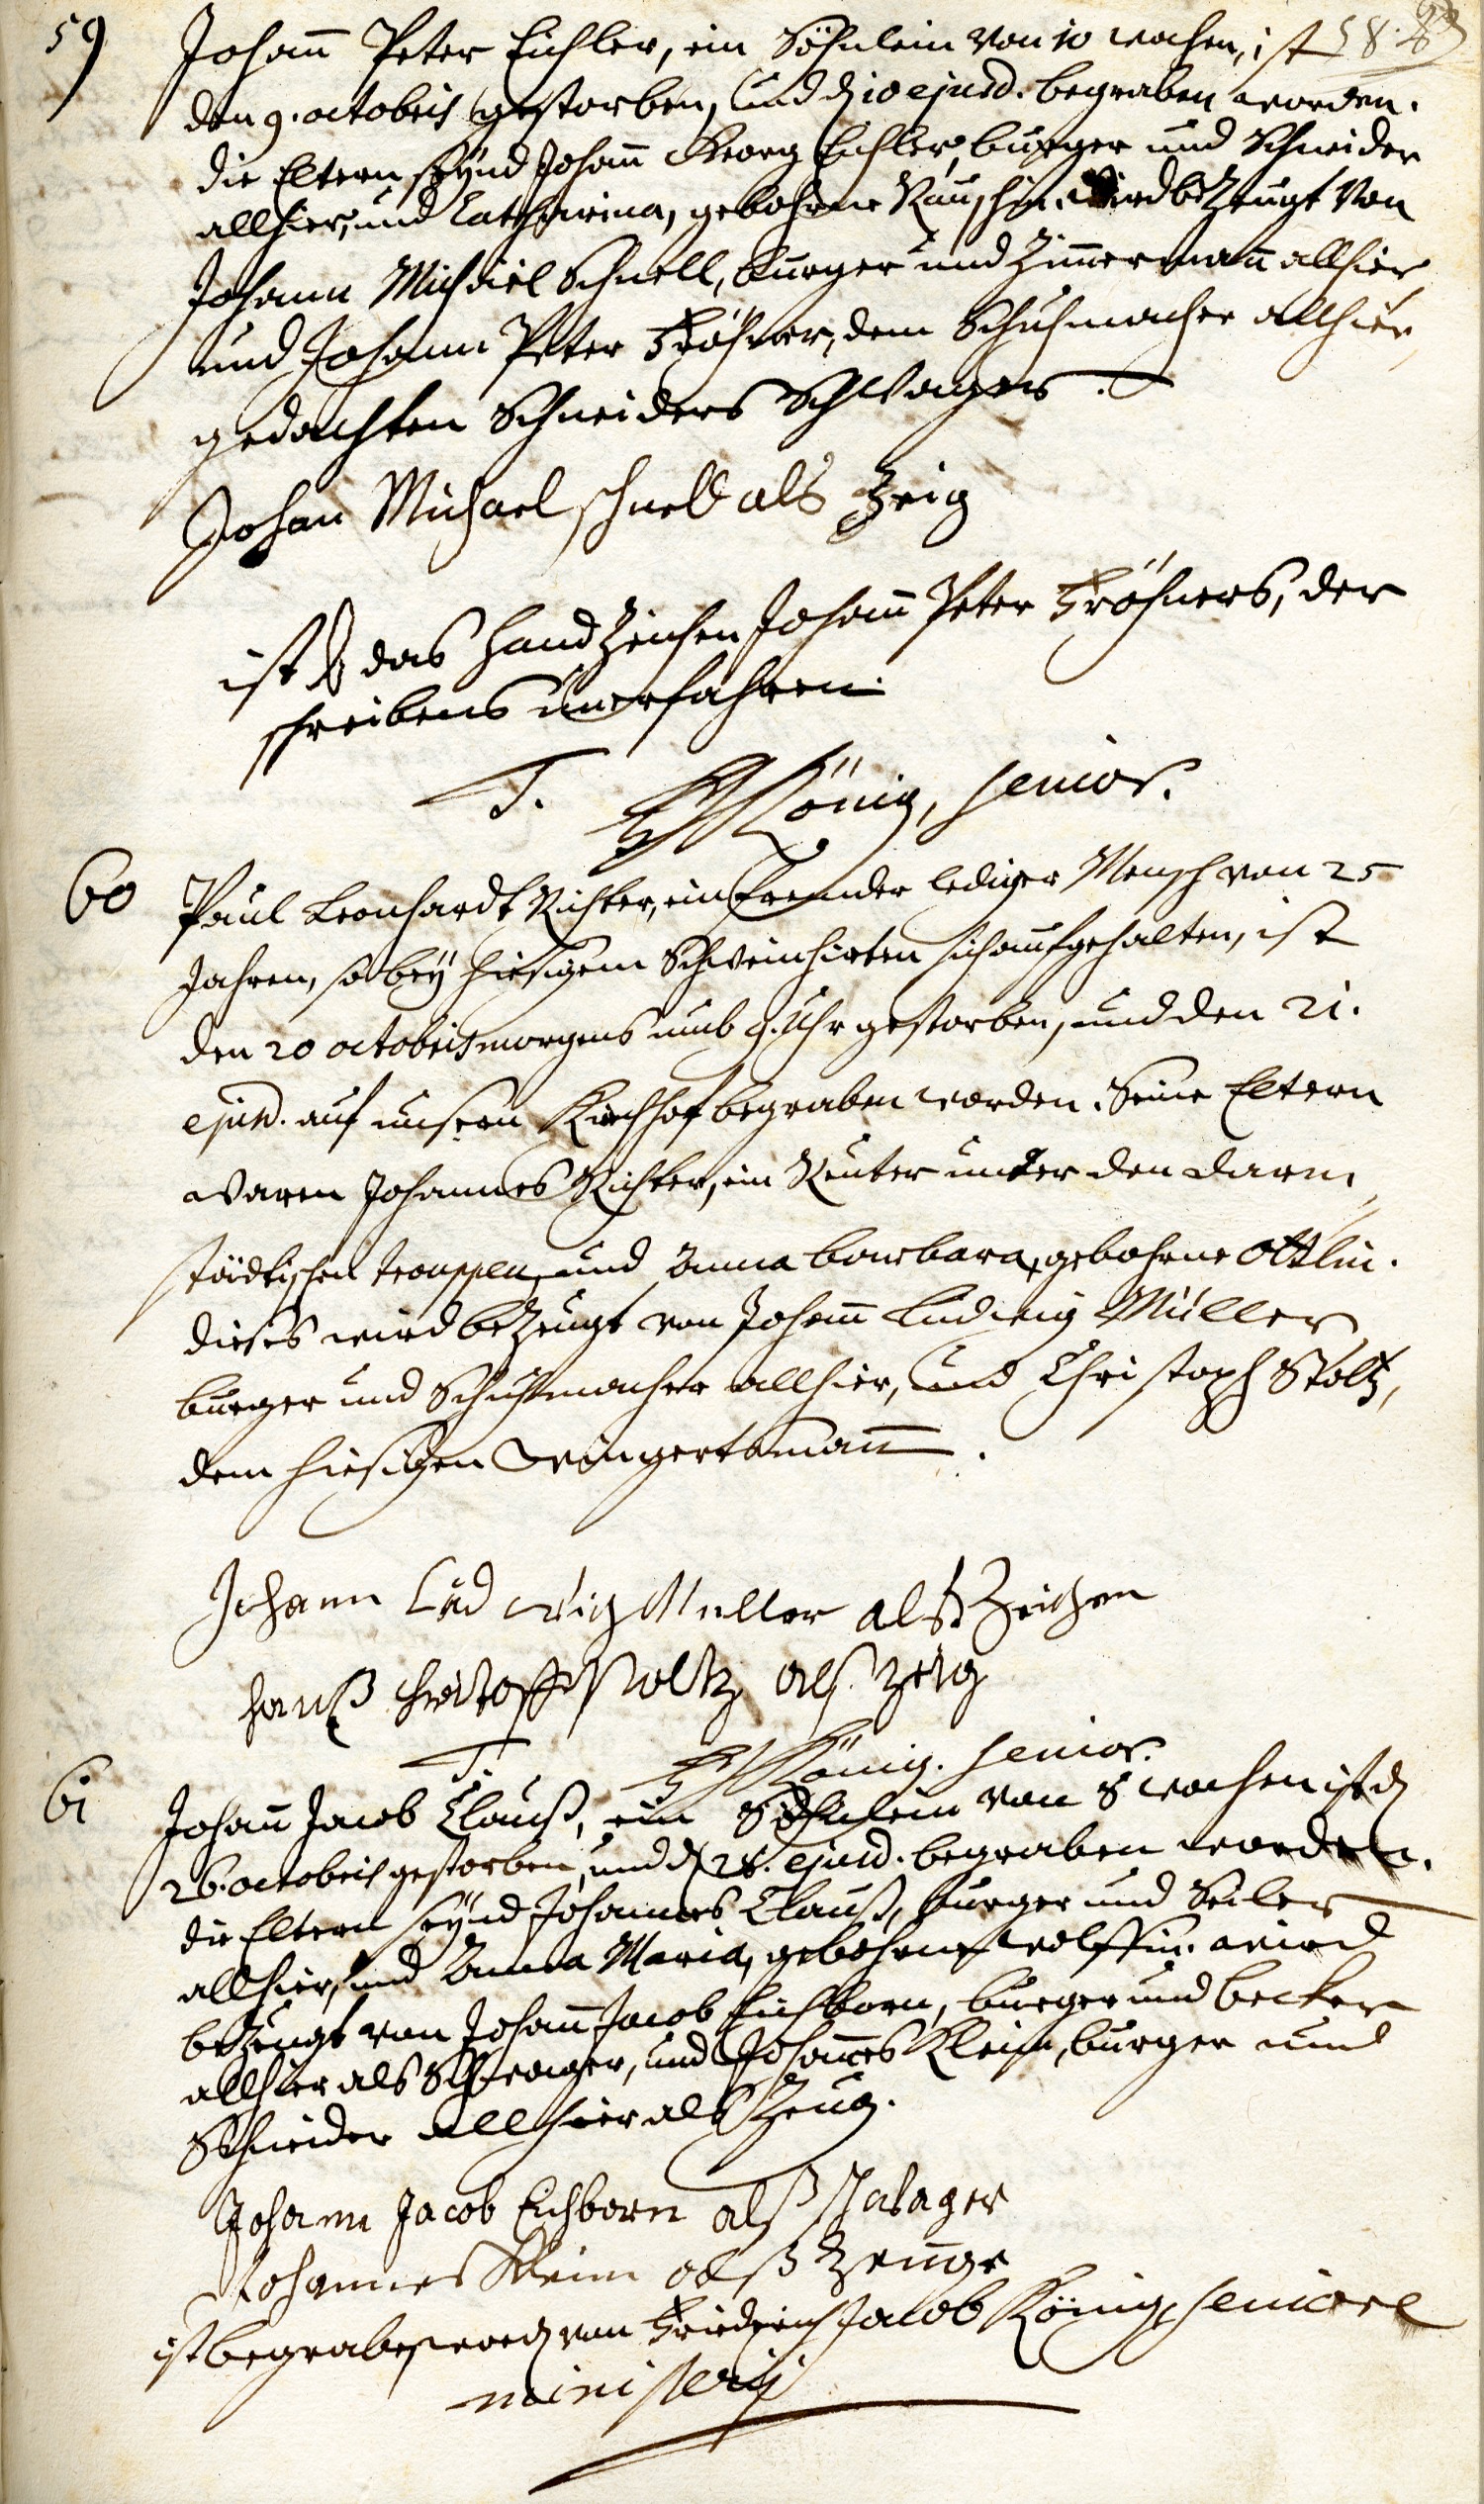 59 Johann Peter Eichler, ein Söhnlein von 10 wochen, ist
den 9. octobris gestorben, und d. 10 ejusd. begraben worden.
die Eltern seynd Johann Georg Eichler, burger und Schneider
allhier, und Catharina, gebohrne Rauschin. wird bezeugt von
Johann Michäel Schnell, burger und Zimmermann allhier
und Johann Peter Fröhner, dem Schuhmacher allhier,
gedachten Schneiders Schwager.
Johan Michael schnell als Zeig
ist das handzeichen Johann Peter Fröhners, der
schreibens unerfahren.
T. König, senior.
60 Paul Leonhardt Richter, ein fremder lediger Mensch von 25
Jahren, so bey hiesigem Schweinhirten sich auffgehalten, ist
den 20 octobris morgens umb 9. Uhr gestorben, und den 21.
ejusd. auf unsern Kirchhof begraben worden. Seine Eltern
waren Johannes Richter, ein Reuter unter den darm,
städtischen trouppen, und Anna barbara, gebohrne Ottlin.
dieses wird bezeugt von Johann Ludwig Müller,
burger und Schuhmacher allhier, und Christoph Stoltz,
dem hiesigen Wingertsmann.
Johann Ludwig Muller alß Zeichen
hanß Stoltz alß zeig
T. König. senior.
61 Johann Jacob Clauß, ein Söhnlein von 8 wochen ist d.
26. octobris gestorben, und d. 28. ejusd. begraben worden.
die Eltern seynd Johannes Clauß, burger und Seiler
allhier, und Anna Maria, gebohrne wolffin. wird
bezeugt von Johann Jacob Eichborn, burger und becker
allhier als Schwager, und Johannes Klein, burger und
Schneider allhier als Zeug.
Johann Jacob Eichborn alß schwager
Johannes Klein alß Zeuge
ist begraben word. von Friedrich Jacob König, seniore
ministerij